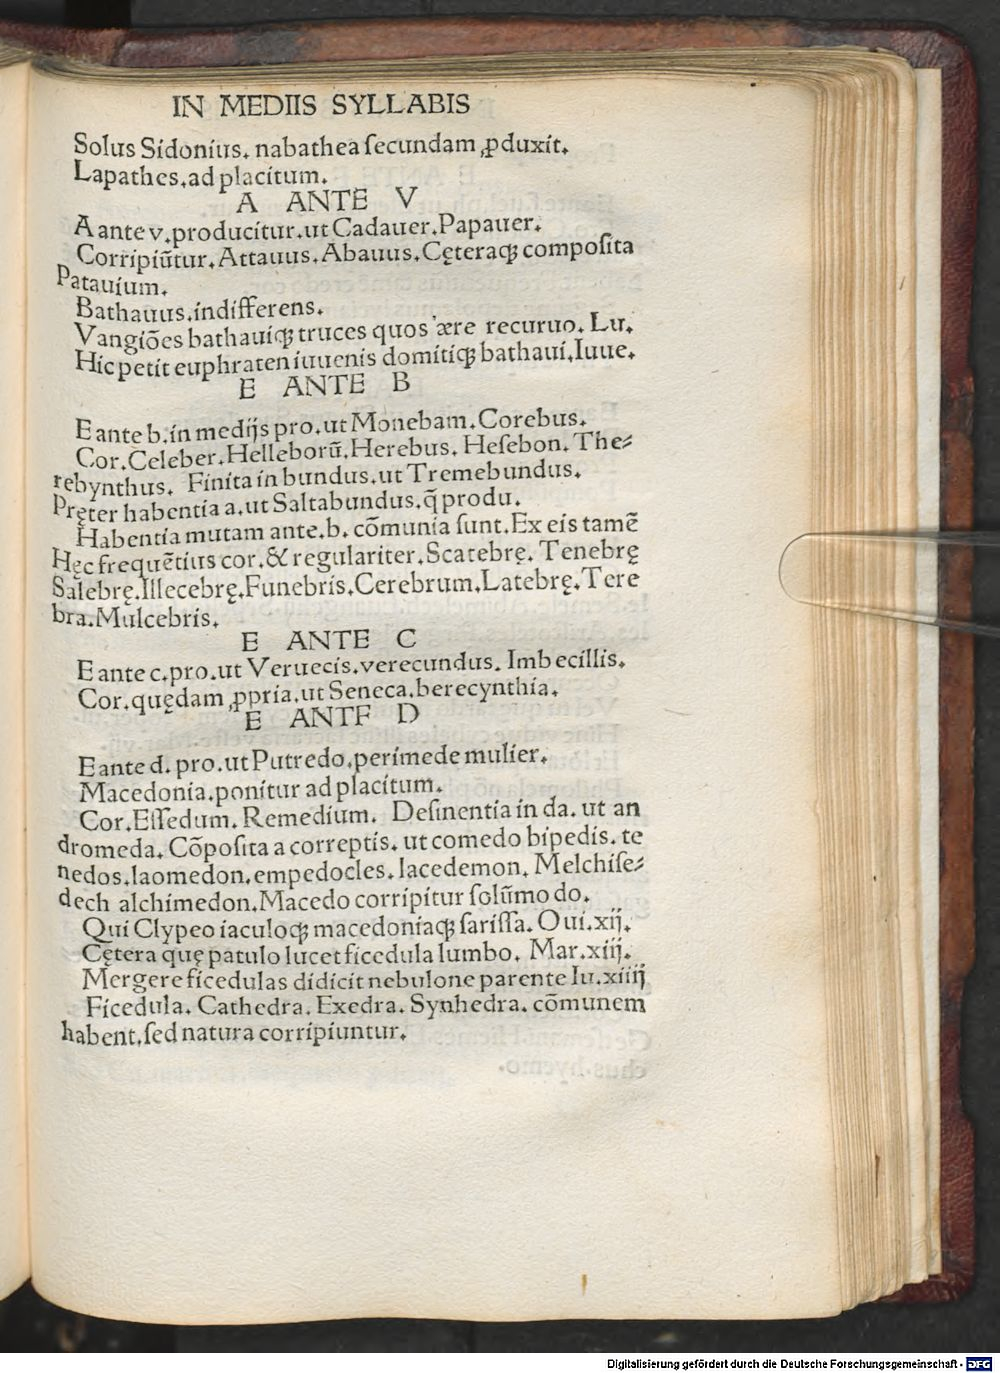 IN MEDIIS SYLLABIS
Solus Sidonius. nabathea ſecundam ꝓduxit.
Lapathes.ad placitum.
A ANTE V
A ante v.producitur.ut Cadauer.Papauer.
Corripiũtur.Attauus.Abauus.Cęteraqꝫ compoſita
Patauium.
Bathauus.indifferens.
Vangiões bathauiqꝫ truces quos ære recuruo. Lu.
Hic petit euphraten iuuenis domitiqꝫ bathaui.Iuue.
E ANTE B
E ante b.in medijs pro.ut Monebam.Corebus.
Cor.Celeber.Helleborũ.Herebus. Heſebon. The⸗
rebynthus. Finita in bundus.ut Tremebundus.
Pręter habentia a.ut Saltabundus.q̃ produ.
Habentia mutam ante.b. cõmunia ſunt.Ex eis tamẽ
Hęc frequẽtius cor.& regulariter.Scatebrę. Tenebrę
Salebrę.Illecebrę.Funebris.Cerebrum.Latebrę.Tere
bra.Mulcebris.
E ANTE C
E ante c.pro.ut Veruecis.verecundus. Imbecillis.
Cor.quędam ꝓpria.ut Seneca.berecynthia.
E ANTF D
E ante d. pro.ut Putredo.perimede mulier.
Macedonia.ponitur ad placitum.
Cor.Eſſedum. Remedium. Deſinentia in da. ut an
dromeda. Cõpoſita a correptis. ut comedo bipedis. te
nedos.laomedon.empedocles. lacedemon. Melchiſe⸗
dech alchimedon.Macedo corripitur ſolũmodo.
Qui Clypeo iaculoqꝫ macedoniaqꝫ ſariſſa. Oui.xij.
Cętera quę patulo lucet ficedula lumbo. Mar.xiij.
Mergere ficedulas didicit nebulone parente Iu.xiiij
Ficedula. Cathedra. Exedra. Synhedra. cõmunem
habent.ſed natura corripiuntur.
Digitalisierung gefördert durch die Deutsche Forschungsgemeinschaft - DFG